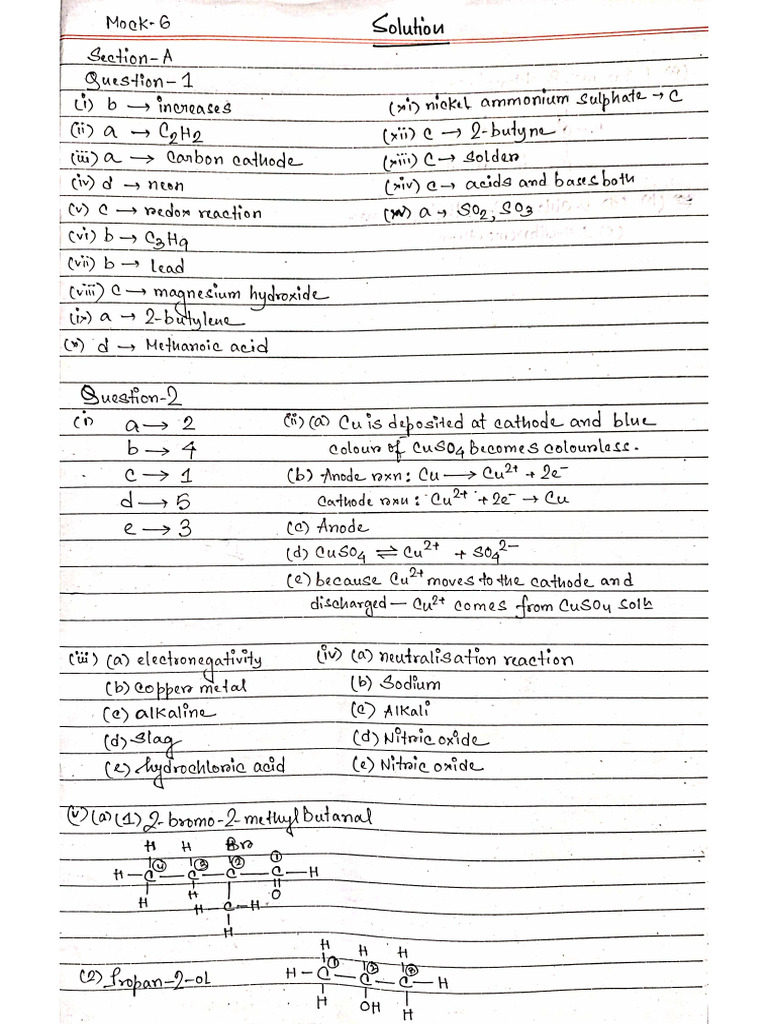 Mock-6
Solution
Section-A
Question-1
(i) b → increases
(ii) a → C2H2
(iii) a → Carbon cathode
(iv) d → neon
(v) c → redox reaction
(vi) b → C3H9
(vii) b → lead
(viii) c → magnesium hydroxide
(ix) a → 2-butylene
(x) d → Methanoic acid
(xi) nickel ammonium sulphate → c
(xii) c → 2-butyne
(xiii) c → solder
(xiv) c → acids and bases both
(xv) a → SO2, SO3
Question-2
(i) a → 2
b → 4
c → 1
d → 5
e → 3
(ii) (a) Cu is deposited at cathode and blue
colour of CuSO4 becomes colourless.
(b) Anode rxn: Cu → Cu2+ + 2e-
Cathode rxn: Cu2+ + 2e- → Cu
(c) Anode
(d) CuSO4 ⇌ Cu2+ + SO42-
(e) because Cu2+ moves to the cathode and
discharged — Cu2+ comes from CuSO4 soln
(iii) (a) electronegativity
(b) copper metal
(c) alkaline
(d) slag
(e) hydrochloric acid
(iv) (a) neutralisation reaction
(b) Sodium
(c) Alkali
(d) Nitric oxide
(e) Nitric oxide
(v) (a) (1) 2-bromo-2-methyl Butanal
H H Br
④ ③ ② ①
H-C-C-C-C-H
H H-C-H O
H
(2) Propan-2-ol
H H H
① ② ③
H-C-C-C-H
H OH H